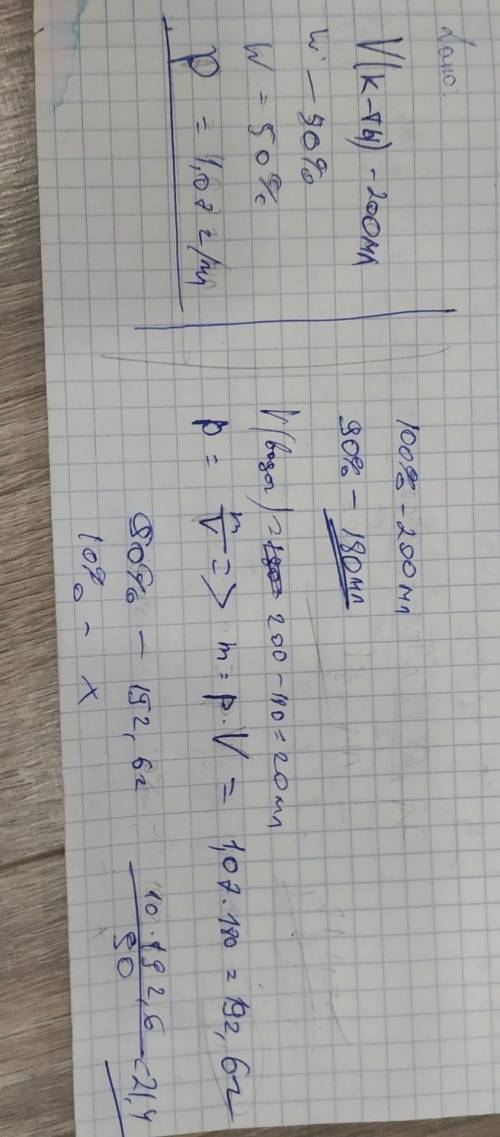 Дано:
V(к-ты) - 200мл
W - 90%
W = 90%
p = 1,07 г/мл
100% - 200мл
90% - 180мл
V(воды) = 200 - 180 = 20мл
p = m/V => m = p · V = 1,07 · 180 = 192,6г
90% - 192,6г
10% - x
10 · 192,6 / 90 = 21,4